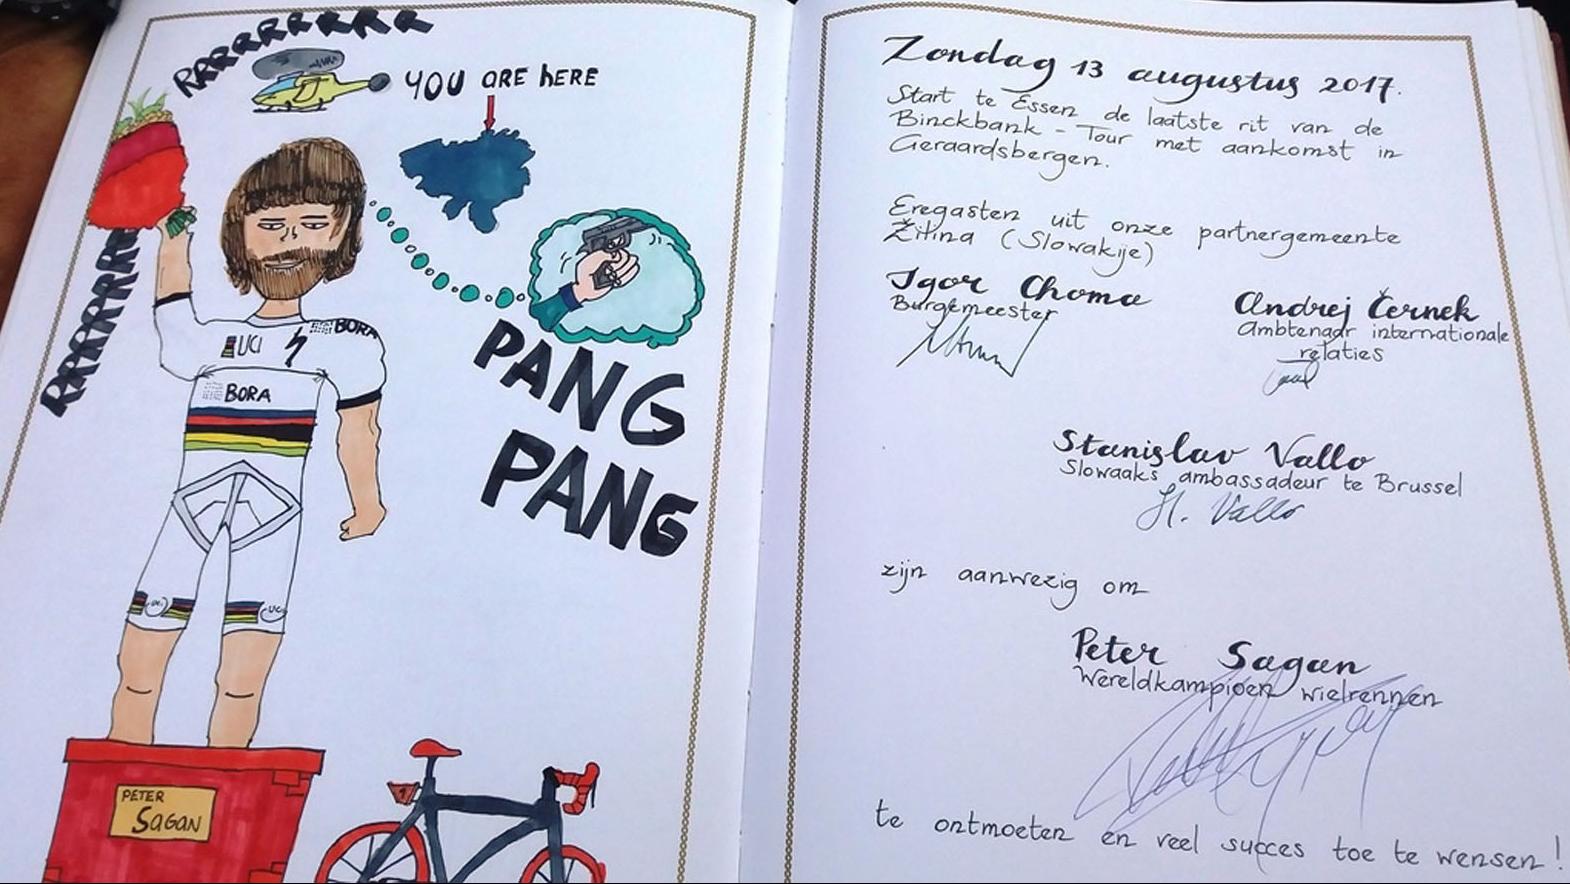 RRRRRRRRR
YOU ARE HERE
RRRRRRR
UCI
BORA
BORA
PANG
PANG
UCI
UCI
PETER
SAGAN
Zondag 13 augustus 2017.
Start te Essen de laatste rit van de
Binckbank - Tour met aankomst in
Geraardsbergen.
Eregasten uit onze partnergemeente
Žilina (Slowakije)
Igor Choma
Burgemeester
Andrej Černek
Ambtenaar internationale
relaties
Stanislav Vallo
Slowaaks ambassadeur te Brussel
St. Vallo
zijn aanwezig om
Peter Sagan
Wereldkampioen wielrennen
te ontmoeten en veel succes toe te wensen!